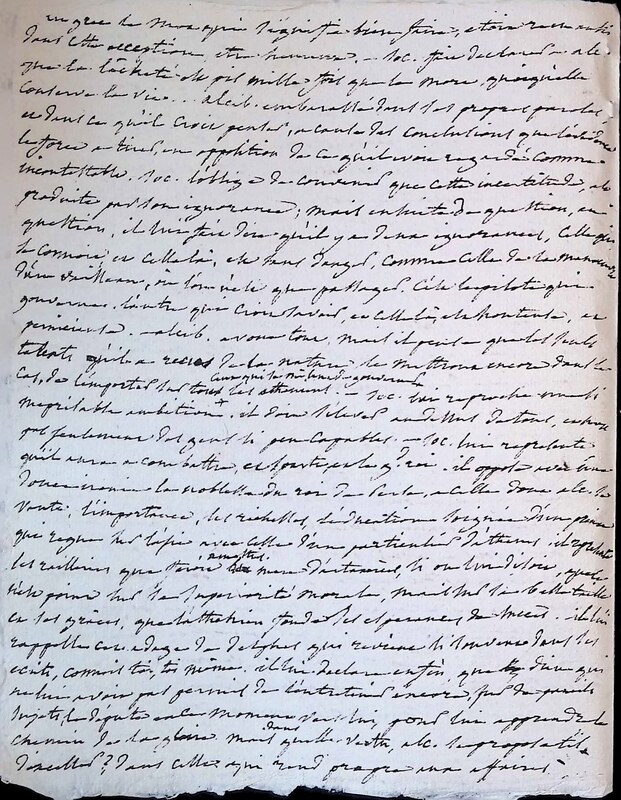 en grec le mot qui signifie bien faire, etoit
dans cette acception, etre heureux. — Soc. fait declarer a alc.
que la lâcheté est pis mille fois que la mort, quoiqu'elle
conserve la vie... alcib. embarassé dans ses propres paroles,
et dans ce qu'il croit penser, a cause des conclusions que
le force a tirer, en opposition de ce qu'il avoit regardé comme
incontestable. Soc. l'oblige de convenir que cette incertitude, est
produite par son ignorance; mais ensuite de question, en
question, il lui fait dire qu'il y a deux ignorances, celle qui
se connoit, et celle là, est sans danger, comme celle de la manœuvre
d'un vaisseau, où l'on n'est que passager. C'est le pilote qui
gouverne. l'autre qui croit savoir, et celle là, est honteuse, et
pernicieuse. — alcib. avoue tout, mais il pense que les seuls
talents qu'il a recus de la nature le mettront encore dans le
cas, de l'emporter sur tous les atheniens. — Soc. lui reproche une si
meprisable ambition. il doit s'elever au dessus de tous, et non
pas seulement des gens si peu capables. — Soc. lui represente
qu'il aura a combattre, et sparte, et le gd. roi. il oppose avec une
douce ironie la noblesse du roi de Perse, a celle dont alc. se
vante, l'importance, les richesses, l'education soignée d'un prince
qui regne sur l'asie avec celle d'un particulier d'athenes. il
les railleries que feroit amestris mere d'artaxerxès, si on lui disoit, que
n'est point sur la superiorité morale, mais sur la belle taille
et ses grâces, que l'athenien fonde ses esperances de succès. il lui
rappelle cet adage de delphes qui revient si souvent dans ses
ecrits, connois toi, toi même. il lui declare enfin, que le dieu qui
ne lui avoit pas permis de l'entretenir encore, sur de pareils
sujets le députe en ce moment vers lui, pour lui apprendre le
chemin de la gloire mais dans quelle vertu, alc. se propose t'il
d'exceller? Dans celle qui rend propre aux affaires.